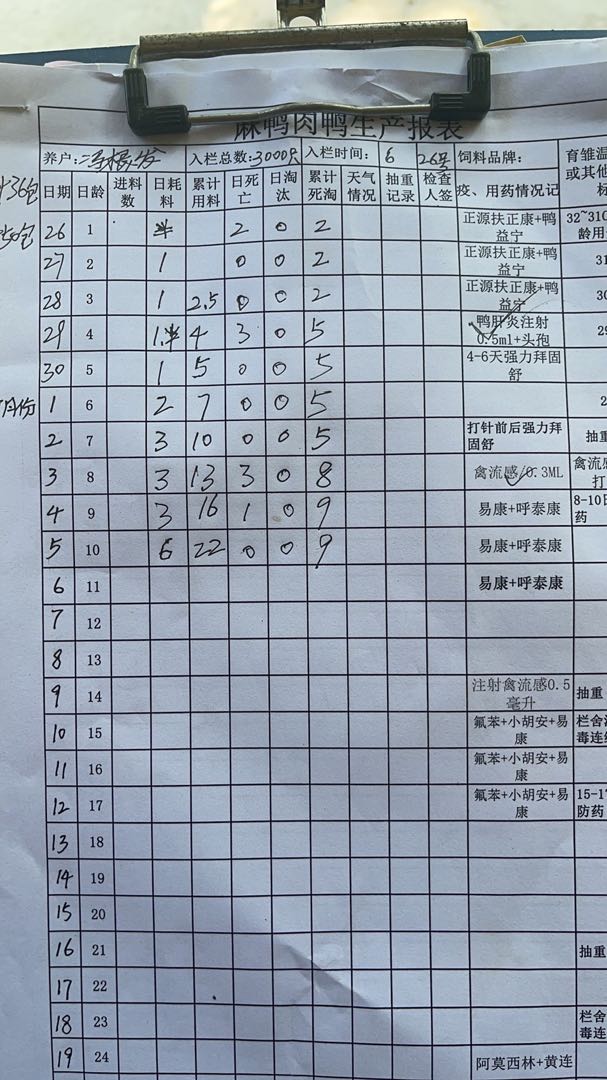 麻鸭肉鸭生产报表
养户: 入栏总数:3000只 入栏时间: 6 26号 饲料品牌: 育雏温
日期 日龄 进料数 日耗料 累计用料 日死亡 日淘汰 累计死淘 天气情况 抽重记录 检查人签 疫、用药情况记 或其他 标
36包
50包
26 1 半 2 0 2 正源扶正康+鸭益宁 32~31 龄用
27 2 1 0 0 2 正源扶正康+鸭益宁 31
28 3 1 2.5 0 0 2 正源扶正康+鸭益宁 30
29 4 1.半 4 3 0 5 鸭肝炎注射0.5ml+头孢 29
30 5 1 5 0 0 5 4-6天强力拜固舒
月份 1 6 2 7 0 0 5 2
2 7 3 10 0 0 5 打针前后强力拜固舒 抽重
3 8 3 13 3 0 8 禽流感/0.3ML 禽流感 打
4 9 3 16 1 0 9 易康+呼泰康 8-10日 药
5 10 6 22 0 0 9 易康+呼泰康
6 11 易康+呼泰康
7 12
8 13
9 14 注射禽流感0.5毫升 抽重
10 15 氟苯+小胡安+易康 栏舍 毒连
11 16 氟苯+小胡安+易康
12 17 氟苯+小胡安+易康 15-17 防药
13 18
14 19
15 20
16 21 抽重
17 22
18 23 栏舍 毒连
19 24 阿莫西林+黄连